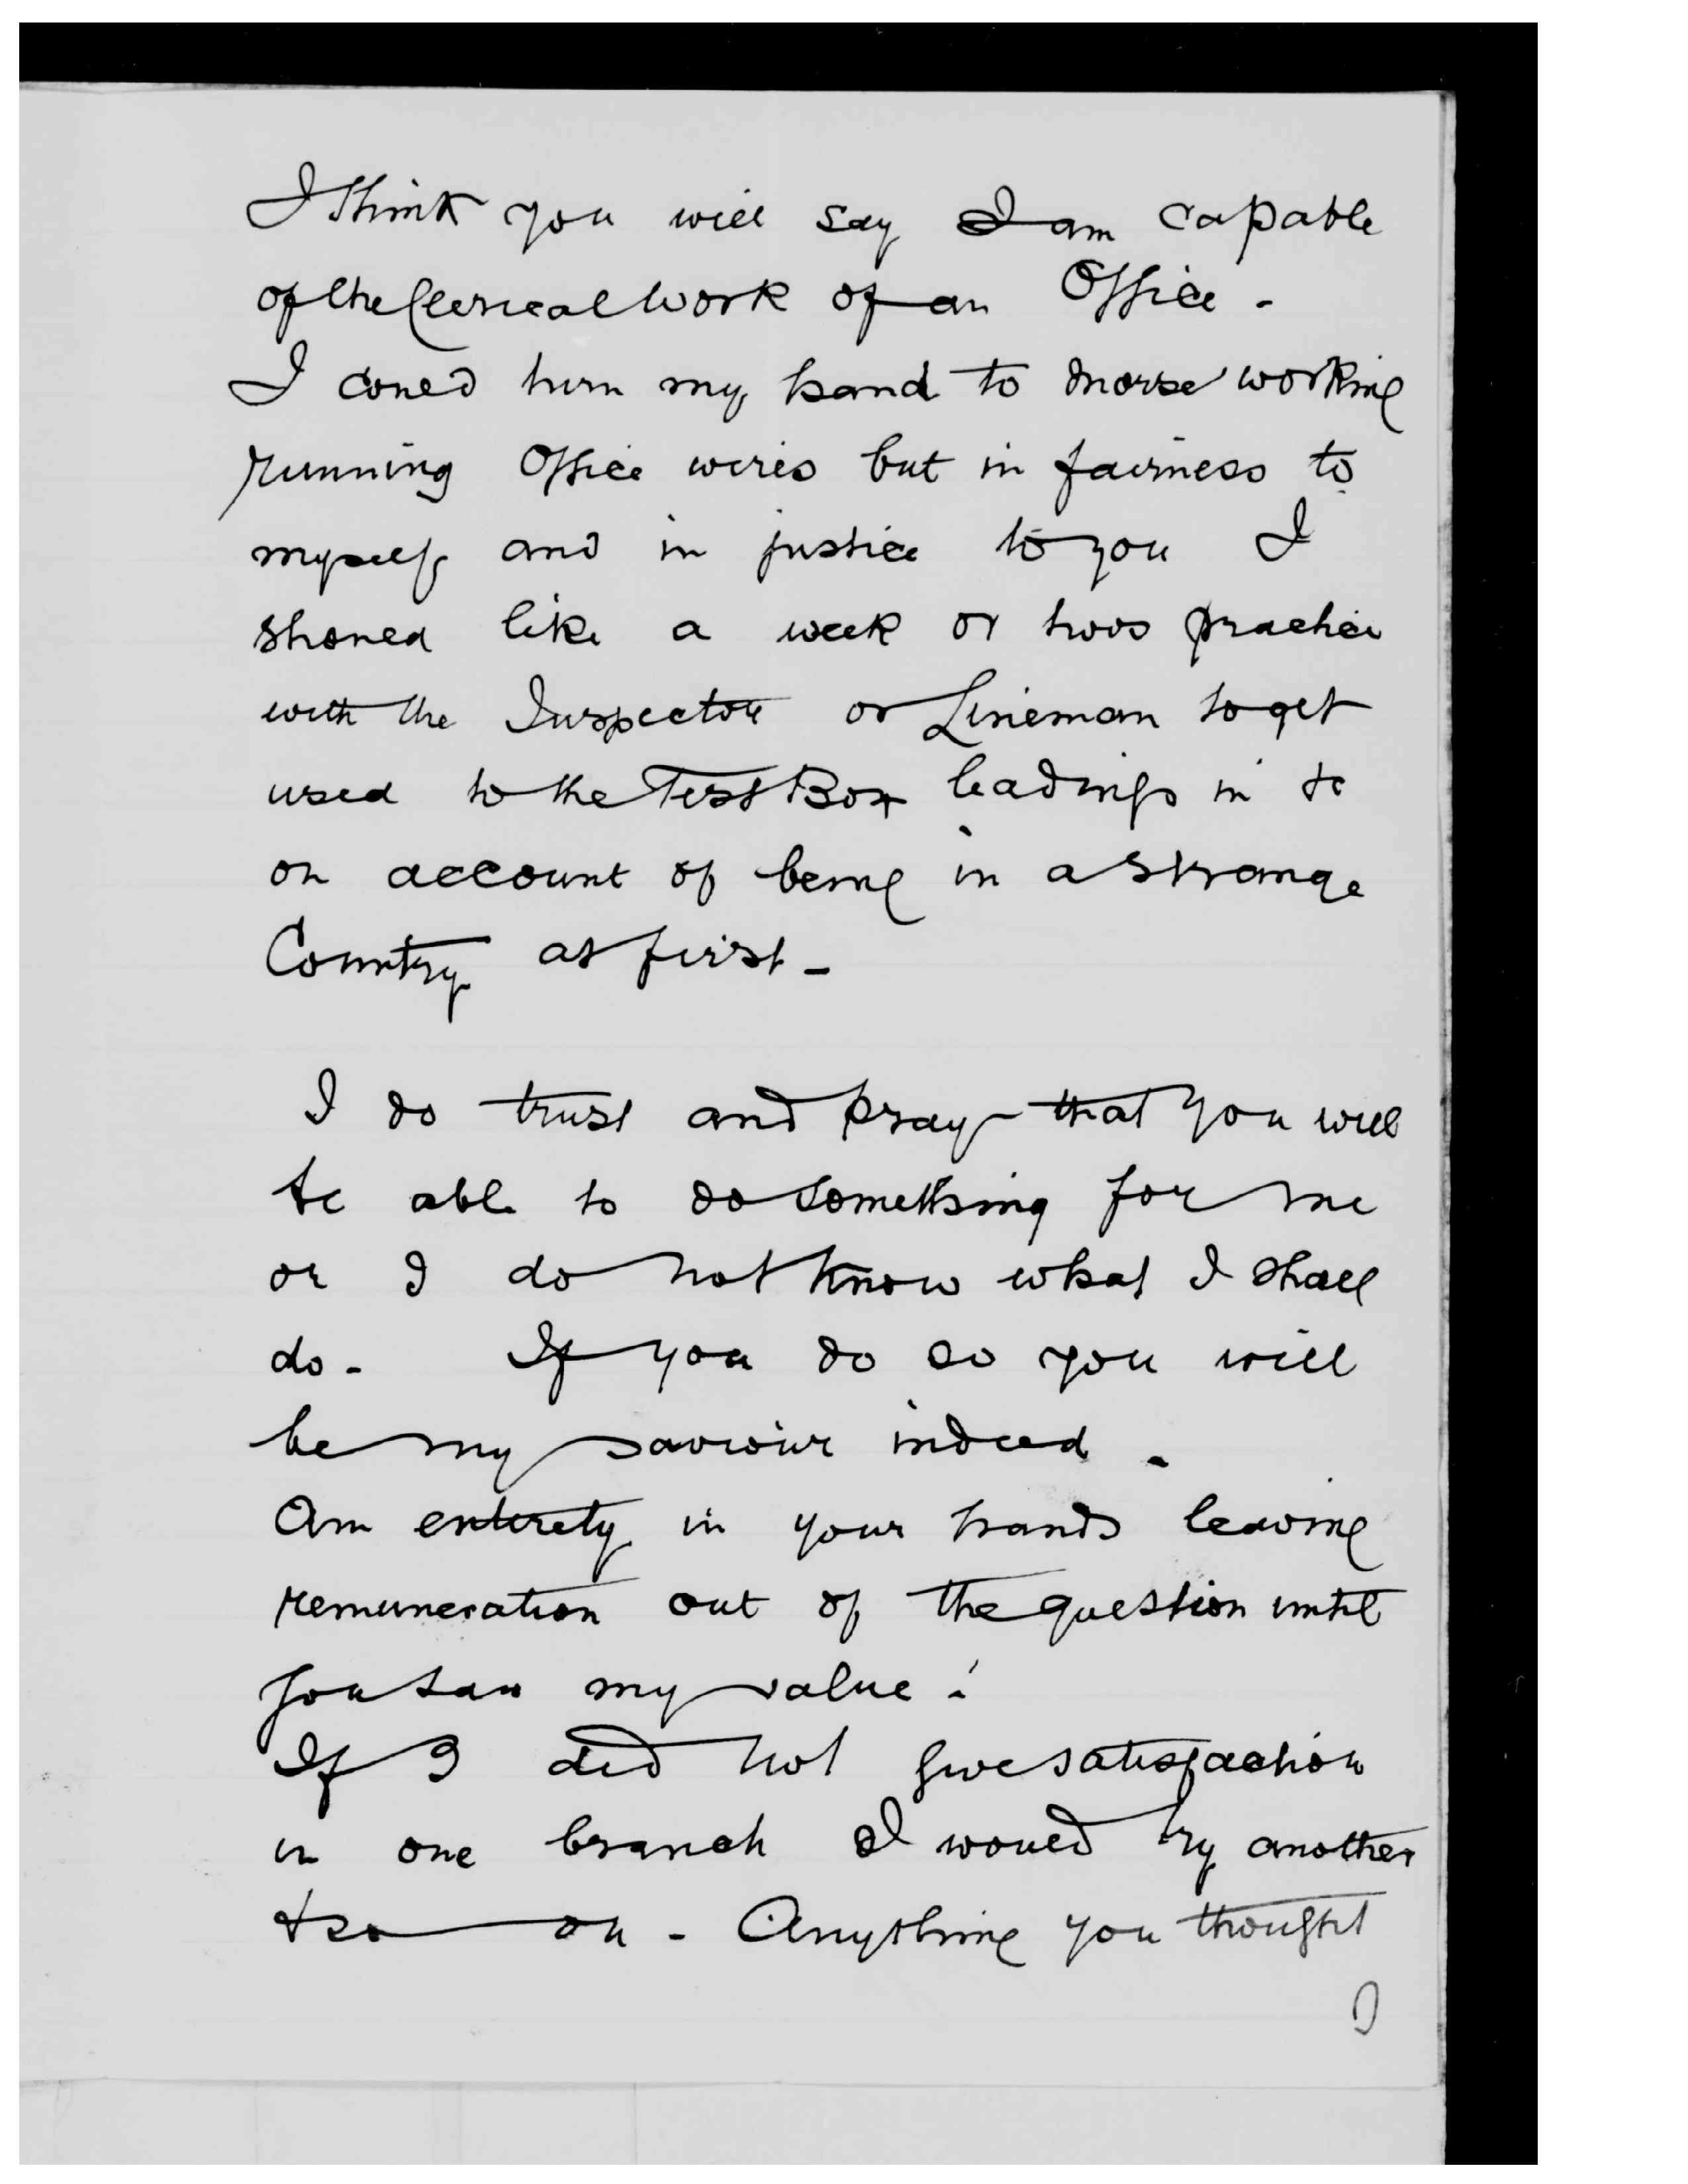 I think you will say I am capable
of the Clerical work of an Office -
I could turn my hand to morse working
running Office wires but in fairness to
myself and in justice to you I
should like a week or twos practice
with the Inspector or Lineman to get
used to the Test Box leadings in &c
on account of being in a strange
Country at first -
I do trust and pray that you will
be able to do something for me
or I do not know what I shall
do - If you do so you will
be my saviour indeed -
Am entirely in your hands leaving
remuneration out of the question until
you saw my value !
If I did not give satisfaction
in one branch I would try another
& so on - Anything you thought
I